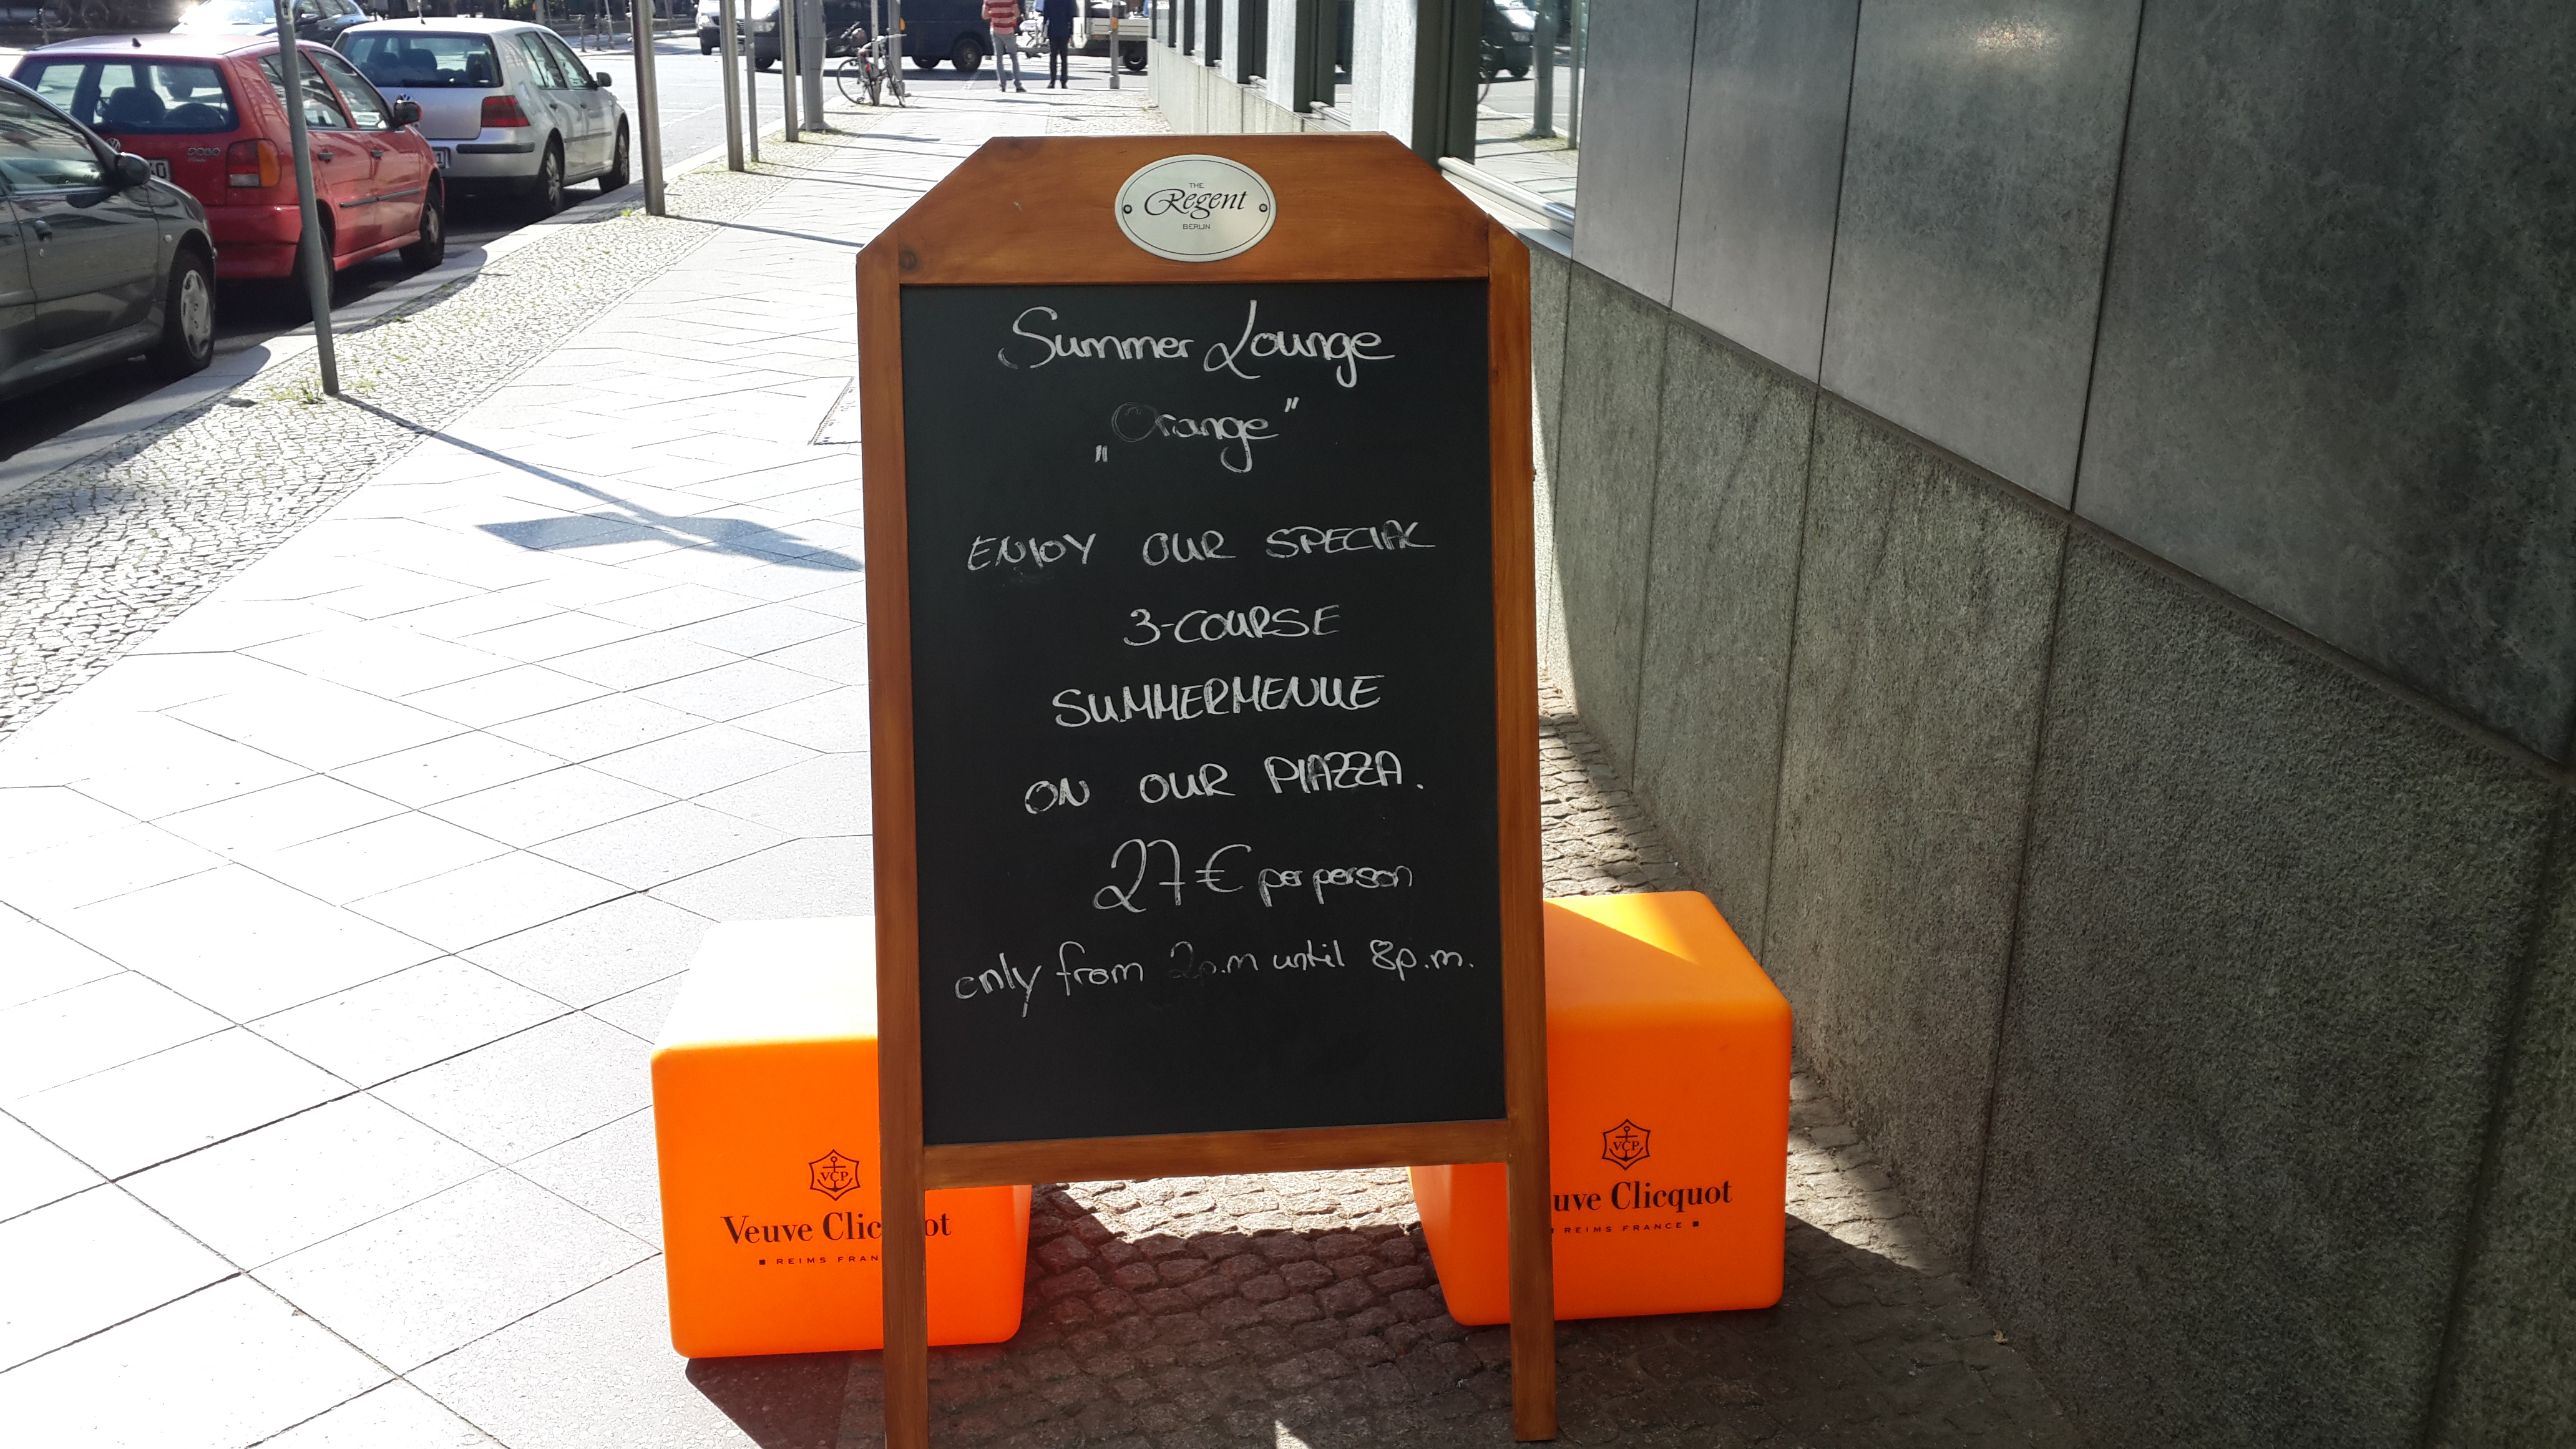 THE
Regent
BERLIN
Summer Lounge
„Orange"
ENJOY OUR SPECIAL
3-COURSE
SUMMERMENUE
ON OUR PIAZZA.
27€ per person
only from 2p.m until 8p.m.
VCP
Veuve Clicquot
REIMS FRAN
VCP
uve Clicquot
REIMS FRANCE
POLO